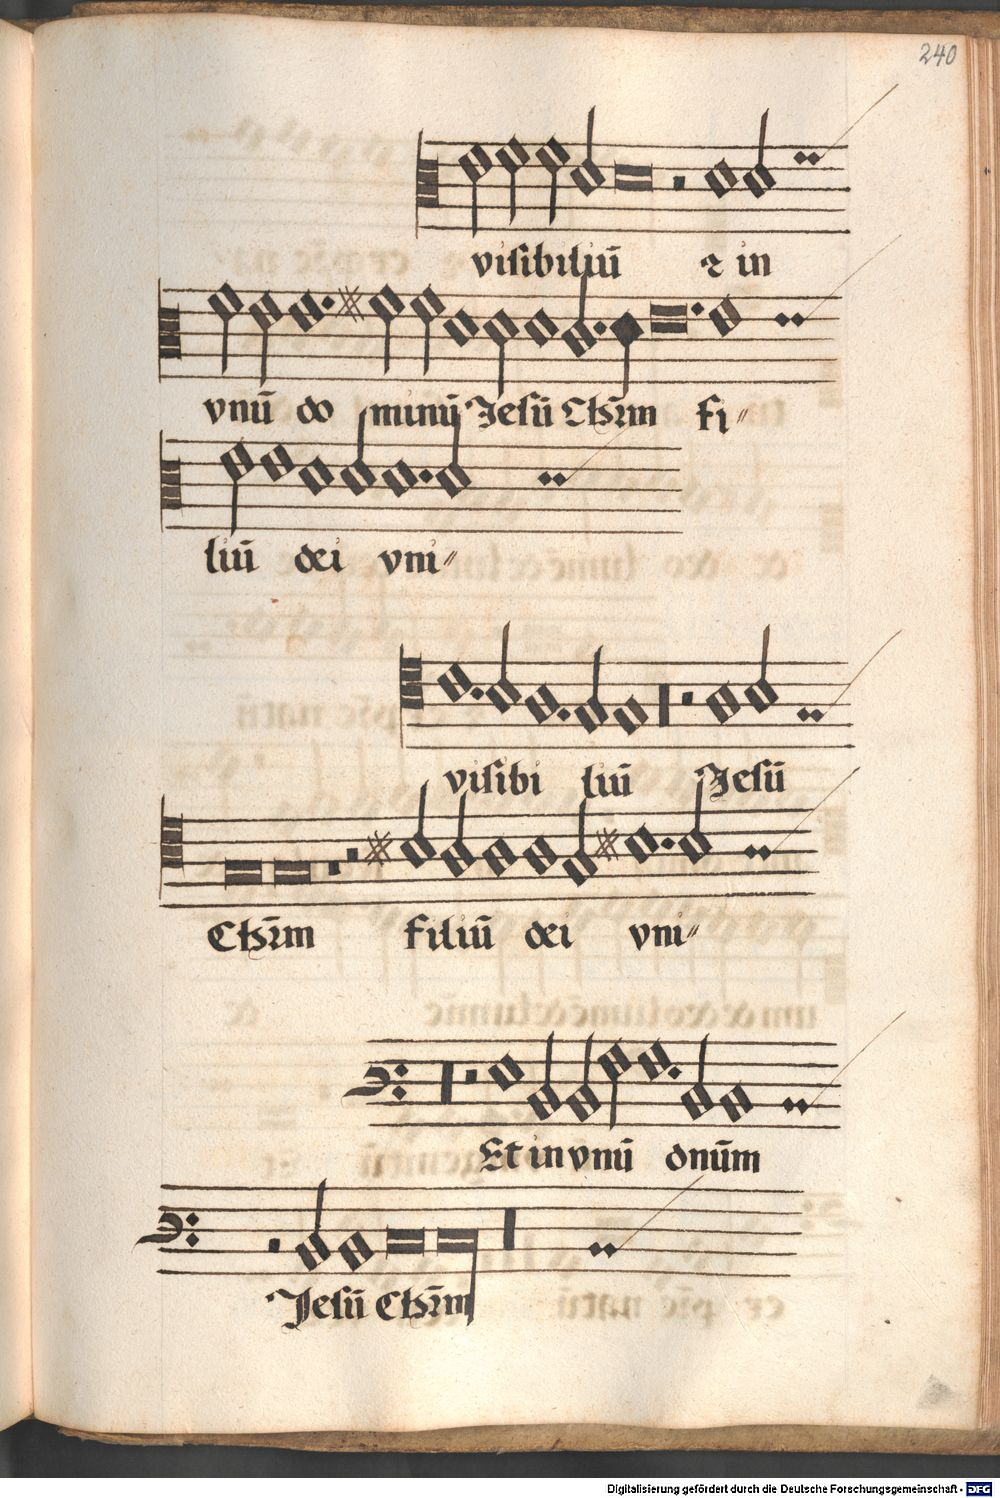 240
visibiliū ⁊ in
vnū do minū Jesū Chr̄m fi〃
liū dei vni〃
visibi liū Jesū
Chr̄m filiū dei vni〃
Et in vnū dnūm
Jesū Chr̄m
Digitalisierung gefördert durch die Deutsche Forschungsgemeinschaft - DFG